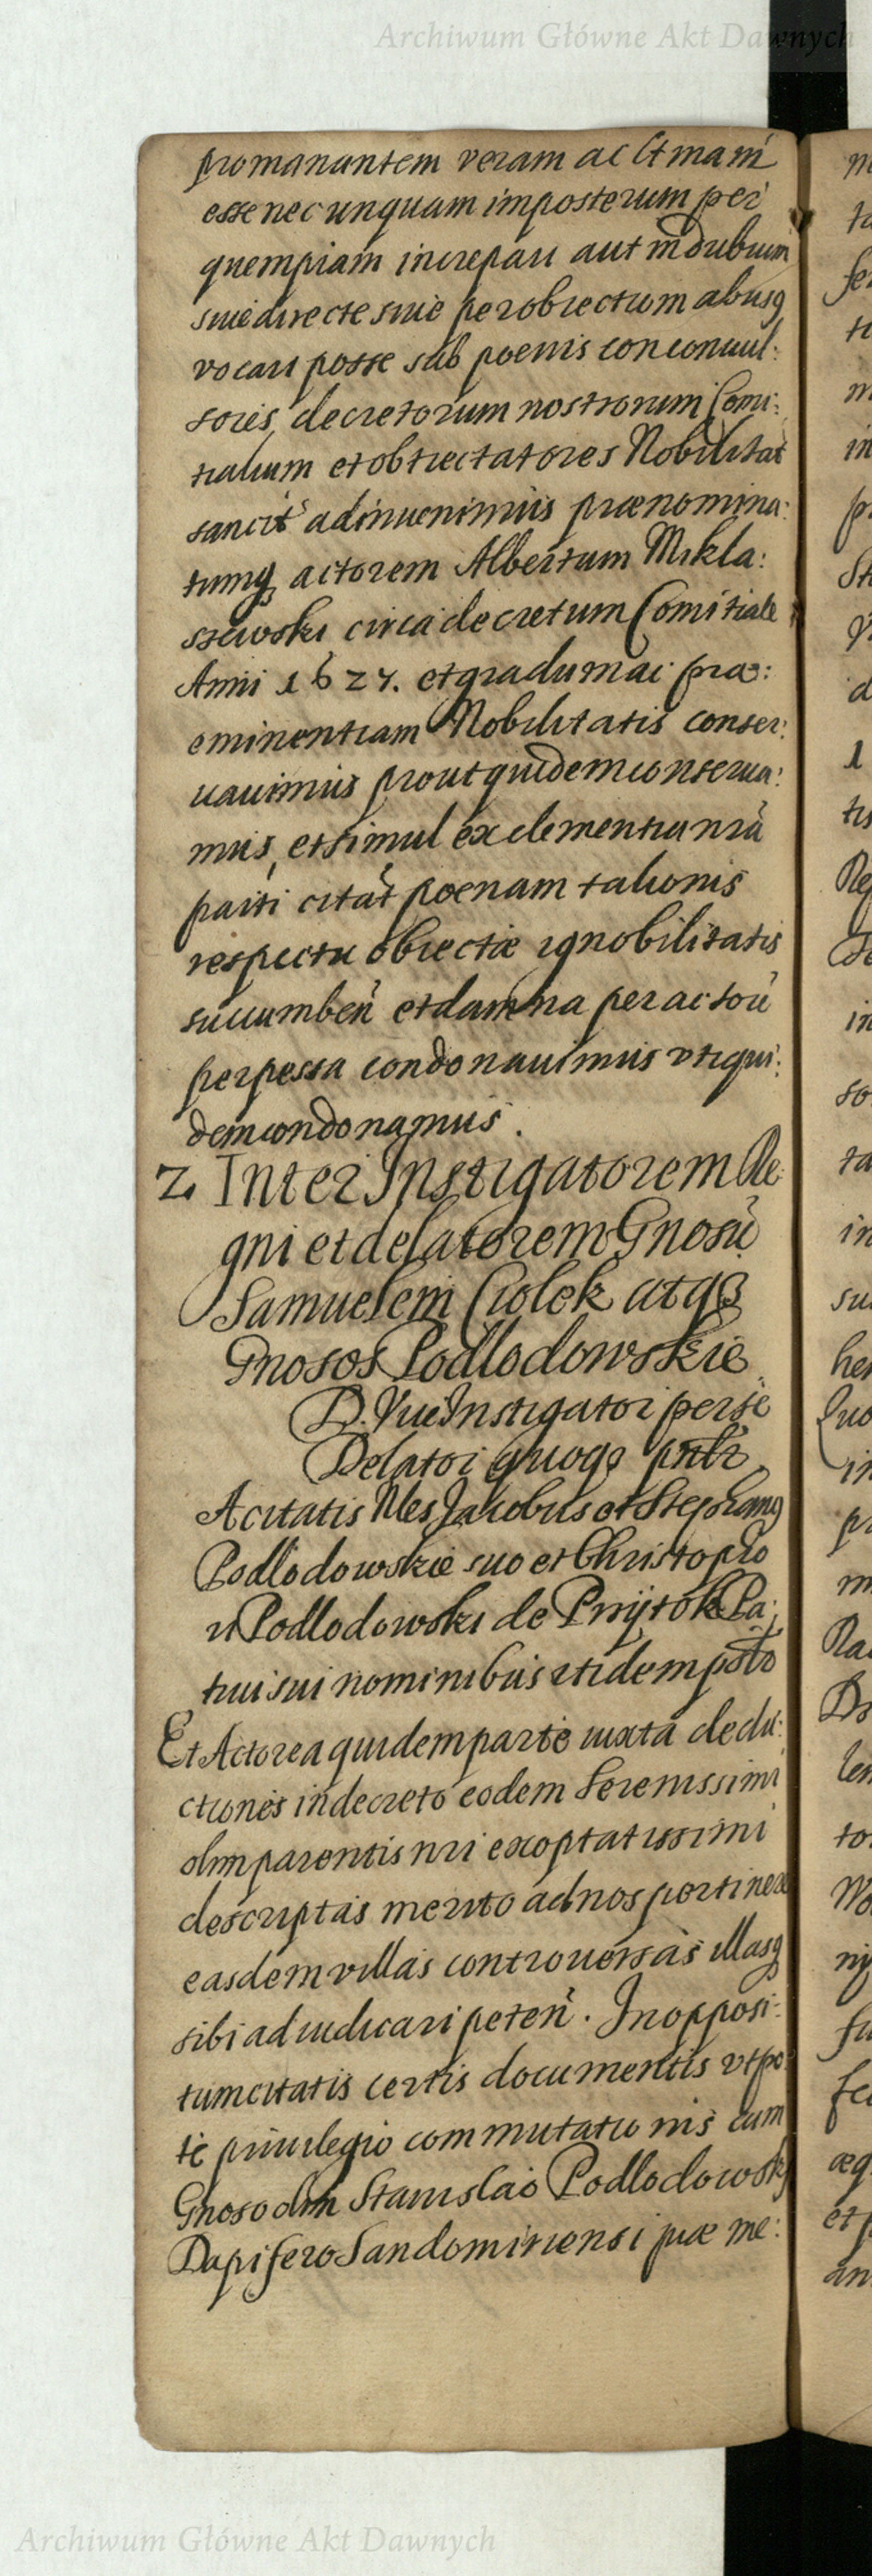 Archiwum Główne Akt Dawnych
promanantem veram ac Ltmam
esse nec unquam imposterum per
quempiam increpari aut in dubium
siue directe siue per obiectum abusq
vocari posse sub poenis con conuul:
sores decretorum nostrorum Comi:
tialium et obtrectatores Nobilitat
sancit adinuenimus prænomina:
tumq actorem Albertum Mikla:
szewski circa decretum Comitiale
Anni 1627. et gradum ac præ:
eminentiam Nobilitatis conser:
uauimus prout quidem conserua:
mus, et simul ex clementia nra
parti citat poenam talionis
respectu obiectæ ignobilitatis
succumben et damna per actore
perpessa condonauimus vti qui:
dem condonamus.
2 Inter Instigatorem Re:
gni et delatorem Gnosu
Samuelem Ciolek atq
Gnosos Podlodowskie
D. Vice Instigator per se
Delator quoq pntr
A citatis Nles Jacobus et Stephanq
Podlodowskie suo et Christophoro
Podlodowski de Przytok Pa:
trui sui nominibus itidem
Et Actorea quidem parte iuxta dedu:
ctiones in decreto eodem Serenissimi
olim parentis nri exoptatissimi
descriptas merito ad nos pertinere
easdem villas controuersas illasq
sibi adiudicari peten. In opposi:
tum citatis certis documentis vtpo:
te priuilegio commutationis cum
Gnoso olim Stanislao Podlodowski
Dapifero Sandomiriensi piæ me:
Archiwum Główne Akt Dawnych